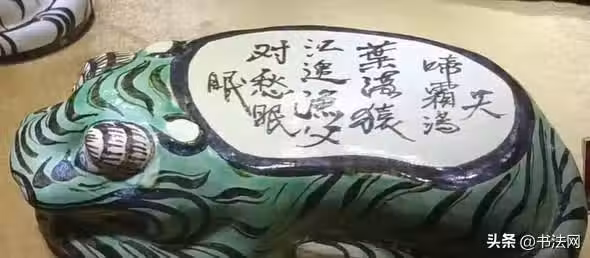 天
啼霜满
葉落猿
江边漁父
对愁眠
眠
头条 @书法网